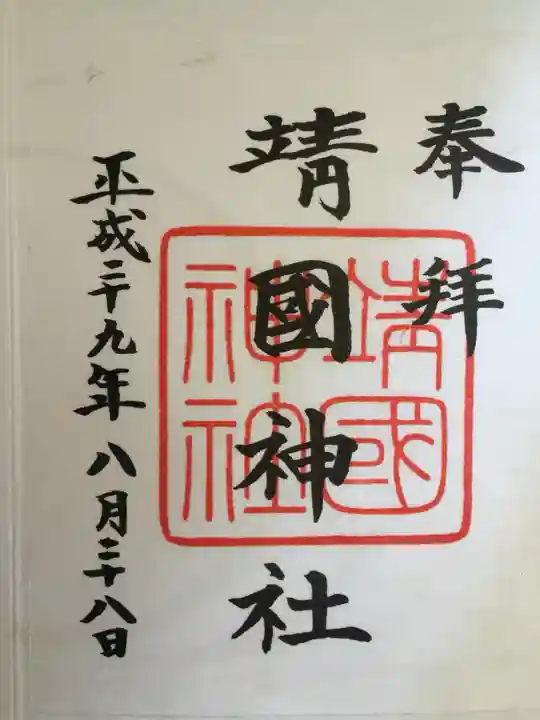 奉拝
靖國神社
靖國神社
平成二十九年八月二十八日